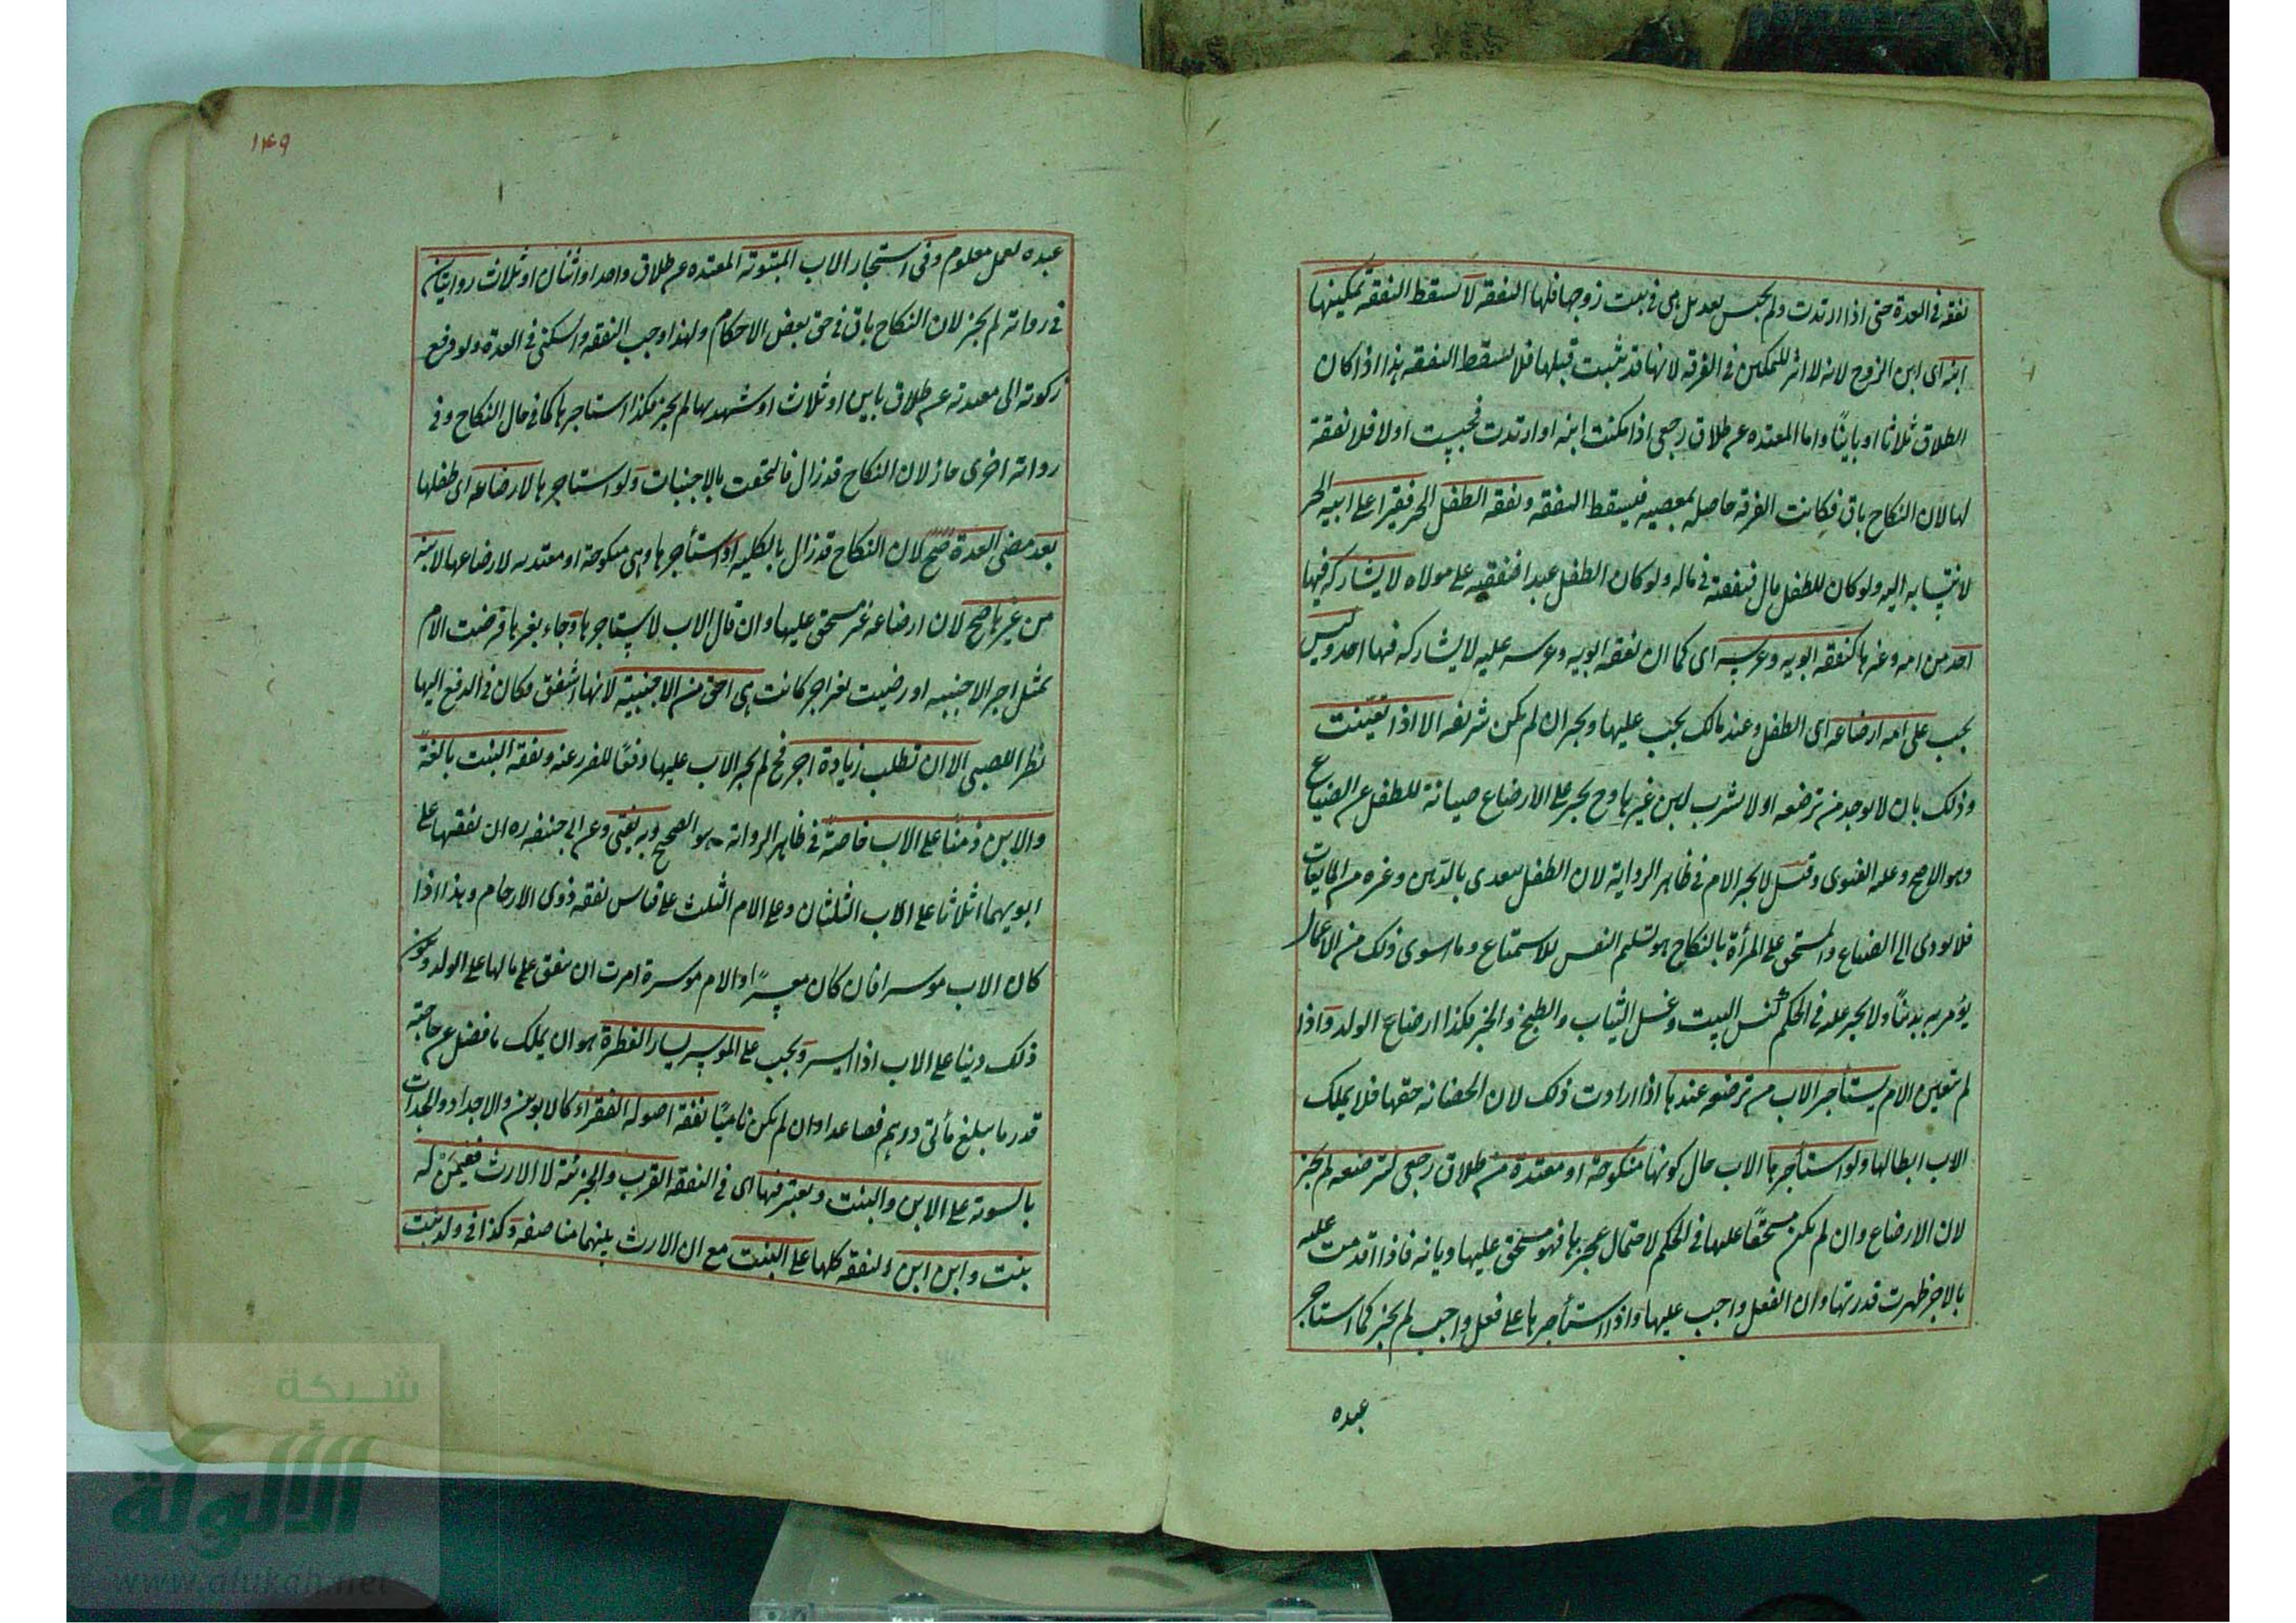 نفقه فى العدة حتى اذا ارتدت ولم تحبس بعد بل هى فى بيت زوجها فلها النفقه لا تسقط النفقه تمكينها
ابنه اى ابن الزوج لانه لا اثر للتمكين فى الفرقه لانها قد تثبت قبلها فلا تسقط النفقه هذا اذا كان
الطلاق ثلاثا او باينًا واما المعتده عن طلاق رجعى اذا مكنت ابنه او ارتدت فحبست او لا فلا نفقة
لها لان النكاح باق فكانت الفرقه حاصله بمعصيه فيسقط النفقه ونفقه الطفل الحر فقيرا على ابيه الحر
لانتسابه اليه ولو كان للطفل مال فنفقته فى ماله ولو كان الطفل عبدا فنفقته على مولاه لا يشاركه فيها
احد من امه وغيرها كنفقه ابويه وعرسه اى كما ان نفقه ابويه وعرسه عليه لا يشاركه فيها احد وليس
يجب على امه ارضاعه اى الطفل وعند مالك يجب عليها ويجبر ان لم تكن شريفه الا اذا تعيّنت
وذلك بان لا يوجد من ترضعه او لا يشرب لبن غيرها وح يجبر على الارضاع صيانة للطفل عن الضياع
وهو الاصح وعليه الفتوى وقيل لا يجبر الام فى ظاهر الرواية لان الطفل يتغدى بالدهن وغيره من المايعات
فلا يودى الى الضياع والمستحق على المرأة بالنكاح هو تسليم النفس للاستمتاع وما سوى ذلك من الاعمال
يؤمر به تدينًا ولا يجبر عليه فى الحكم ككنس البيت وغسل الثياب والطبخ والخبز فكذا ارضاع الولد واذا
لم يتعين الام يستأجر الاب من ترضعه عندها اذا ارادت ذلك لان الحضانه حقها فلا يملك
الاب ابطالها ولو استأجرها الاب حال كونها منكوحة او معتدة من طلاق رجعى لترضعه لم يجز
لان الارضاع وان لم يكن مستحقًا عليها فى الحكم لاحتمال عجزها فهو مستحق عليها ديانه فاذا اقدمت عليه
بالاجر ظهرت قدرتها وان الفعل واجب عليها واذا استأجرها على فعل واجب لم يجز كما استاجر
عبده
١٤٩
عبده لعمل معلوم وفى استيجار الاب المبتوته المعتده عن طلاق واحد او اثنان او ثلاث روايتان
فى رواته لم يجز لان النكاح باق فى حق بعض الاحكام ولهذا وجب النفقه والسكنى فى العدة ولو دفع
زكوته الى معتدته عن طلاق باين او ثلاث او شهد لها لم يجز فكذا استاجرها كما فى حال النكاح وفى
رواته اخرى جاز لان النكاح قد زال فالتحقت بالاجنبيات ولو استاجرها لارضاعه اى طفلها
بعد مضى العدة صح لان النكاح قد زال بالكليه او استأجرها وهى منكوحة او معتدته لارضاعها لابنه
من غيرها صح لان ارضاعه غير مستحق عليها وان قال الاب لا يستاجرها وجاء بغيرها فرضت الام
بمثل اجر الاجنبيه او رضيت بغير اجر كانت هى احق من الاجنبية لانها اشفق فكان فى الدفع اليها
نظرا للصبى الا ان تطلب زيادة اجر فح لم يجبر الاب عليها دفعًا للضرر عنه ونفقه البنت بالغةً
والابن زمنًا على الاب خاصةً فى ظاهر الرواته هو الصحيح وبه يفتى وعن ابى حنيفه ره ان نفقتها على
ابويهما اثلاثا على الاب الثلثان وعلى الام الثلث على قياس نفقه ذوى الارحام وهذا اذا
كان الاب موسرا فان كان معسرًا والام موسرة امرت ان ينفق على مالها على الولد ويكون
ذلك دينا على الاب اذا ايسر ويجب على الموسر يسار الفطرة هو ان يملك ما فضل عن حاجته
قدر ما يبلغ مأتى درهم فصاعدا وان لم يكن ناميًا نفقة اصوله الفقراء كالابوين والاجداد والجدات
بالسوته على الابن والبنت ويعتبر فيها اى فى النفقه القرب والجزئية لا الارث ففيمن له
بنت وابن ابن النفقه كلها على البنت مع ان الارث بينهما مناصفه وكذا فى ولد بنت
شبكة
الألوكة
www.alukah.net